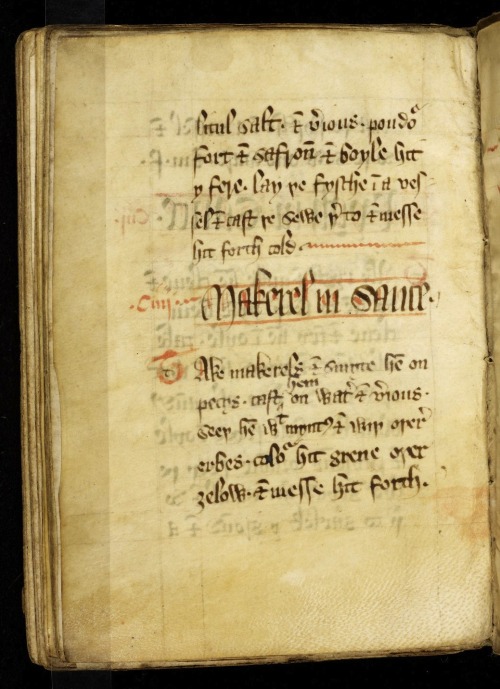 litul salt. & v̄ious. poudo᷒
fort & safron̄ & boyle hit
y fere. lay þe fysche ī a ves
sel & cast þe sewe þ̄to & messe
hit forth cold.
.Ciiij. Makerel in sauce.
Take makerels & smyte hē on
pecys. cast hem on wat̄ & v̄ious.
seeþ hē wᵗ mynt̄ & wiþ oþer̄
erbes. colo᷒ hit grene oþer
ȝelow. & messe hit forth.